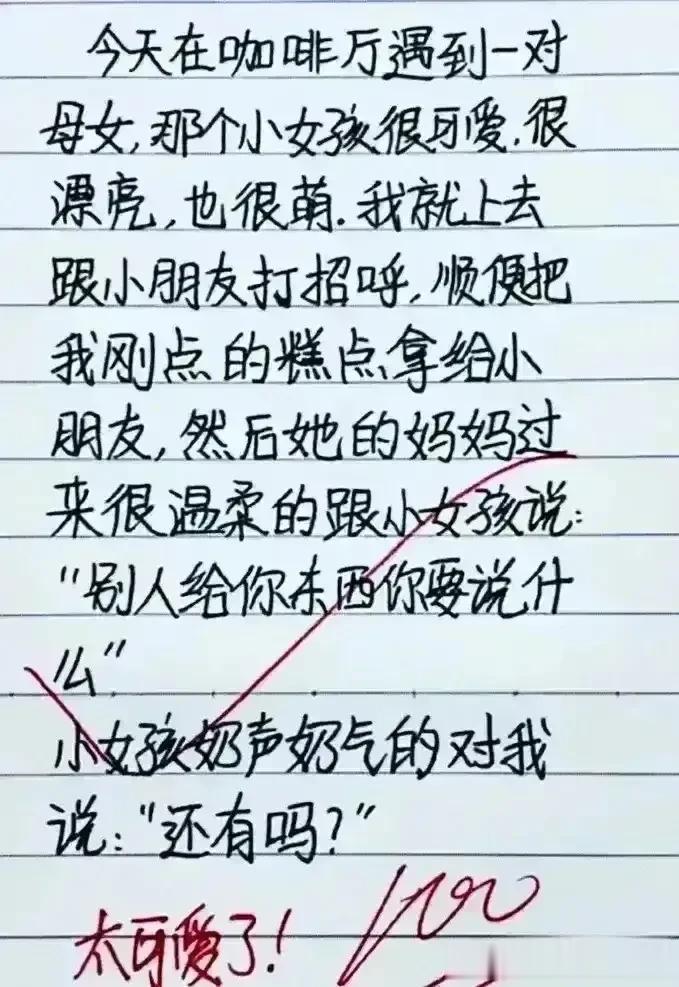 今天在咖啡厅遇到一对
母女,那个小女孩很可爱.很
漂亮,也很萌.我就上去
跟小朋友打招呼,顺便把
我刚点的糕点拿给小
朋友,然后她的妈妈过
来很温柔的跟小女孩说:
"别人给你东西你要说什
么"
小女孩奶声奶气的对我
说:"还有吗?"
太可爱了!
100